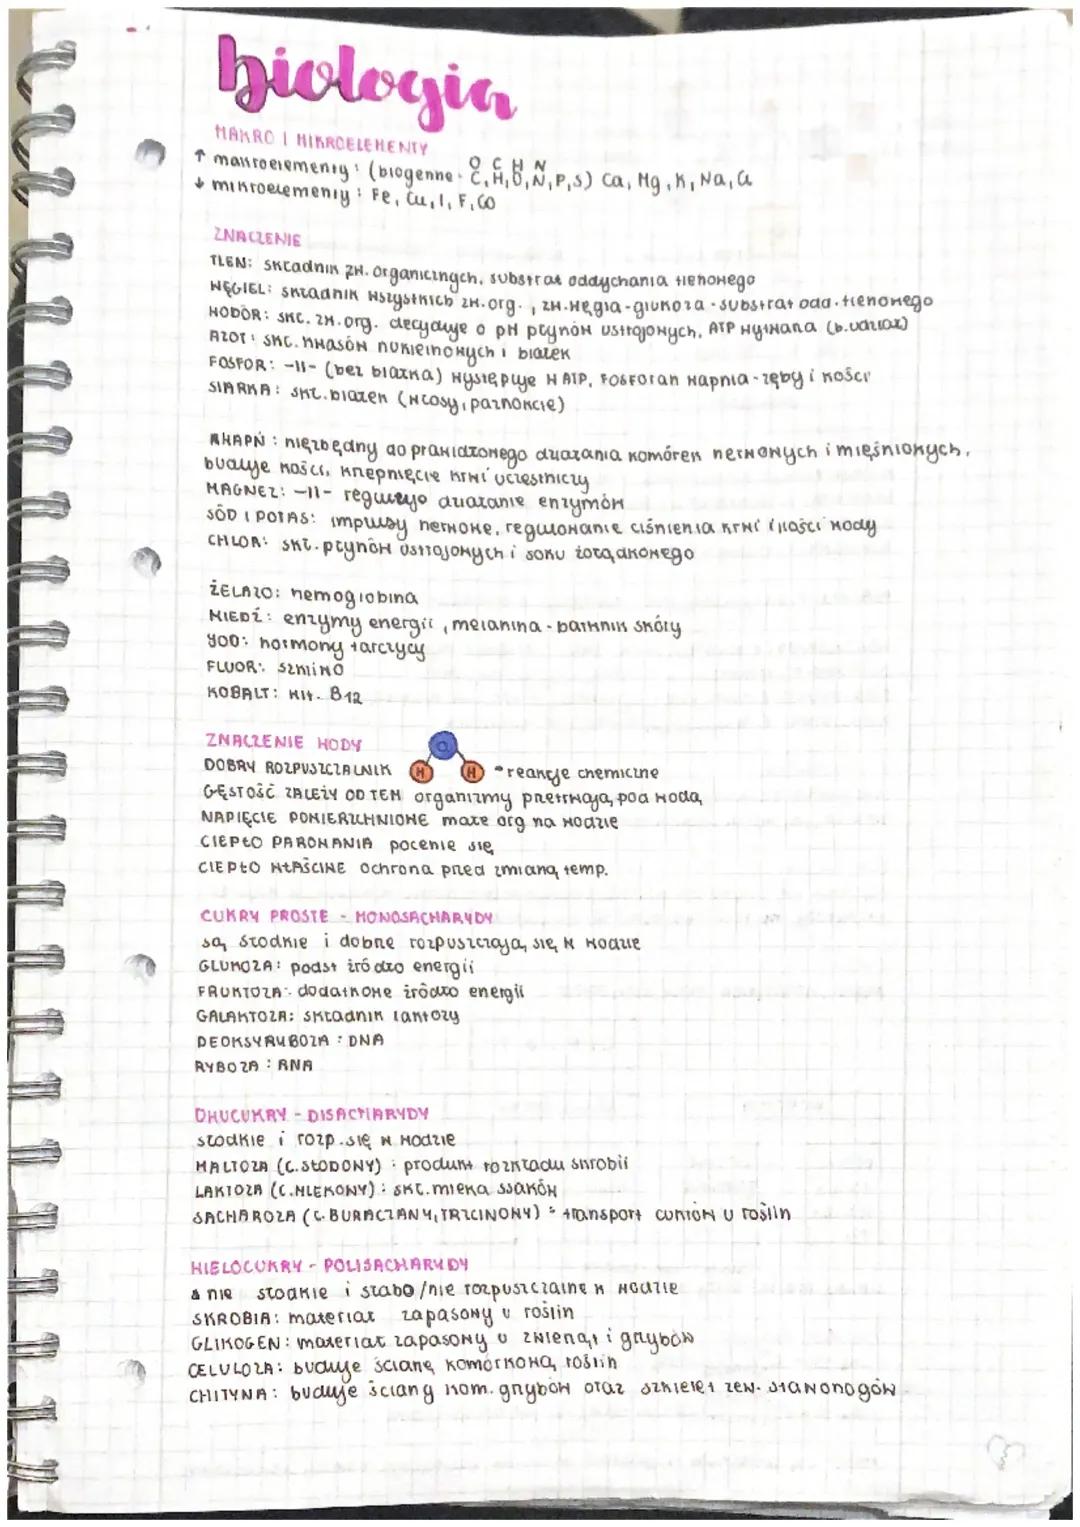 biologia
MAKRO I MIKROELEMENTY
O C H N
↑ makroelementy: (biogenne - C, H, O, N, P, S) Ca, Mg, K, Na, Cl
↓ mikroelementy: Fe, Cu, I, F, Co
ZNACZENIE
TLEN: składnik zw. organicznych, substrat oddychania tlenowego
WĘGIEL: składnik wszystkich zw. org., zw. węgla - glukoza - substrat odd. tlenowego
WODÓR: skł. zw. org. decyduje o pH płynów ustrojowych, ATP wytwarza (b. udział)
AZOT: skł. kwasów nukleinowych i białek
FOSFOR: -11- (bez białka) występuje w ATP, fosforan wapnia - zęby i kości
SIARKA: skł. białek (włosy, paznokcie)
WAPŃ: niezbędny do prawidłowego działania komórek nerwowych i mięśniowych,
buduje kości, krzepnięcie krwi uczestniczy
MAGNEZ: -11- reguluje działanie enzymów
SÓD I POTAS: impulsy nerwowe, regulowanie ciśnienia krwi i ilości wody
CHLOR: skł. płynów ustrojowych i soku żołądkowego
ŻELAZO: hemoglobina
MIEDŹ: enzymy energii, melanina - barwnik skóry
JOD: hormony tarczycy
FLUOR: szkliwo
KOBALT: wit. B12
ZNACZENIE WODY
O
DOBRY ROZPUSZCZALNIK H H - reakcje chemiczne
GĘSTOŚĆ ZALEŻY OD TEM organizmy przetrwają pod wodą
NAPIĘCIE POWIERZCHNIOWE małe org na wodzie
CIEPŁO PAROWANIA pocenie się
CIEPŁO WŁAŚCIWE ochrona przed zmianą temp.
CUKRY PROSTE - MONOSACHARYDY
są słodkie i dobrze rozpuszczają się w wodzie
GLUKOZA: podst źródło energii
FRUKTOZA: dodatkowe źródło energii
GALAKTOZA: składnik laktozy
DEOKSYRYBOZA: DNA
RYBOZA: RNA
DWUCUKRY - DISACHARYDY
słodkie i rozp. się w wodzie
MALTOZA (C. SŁODOWY): produkt rozkładu skrobii
LAKTOZA (C. MLEKOWY): skł. mleka ssaków
SACHAROZA (C. BURACZANY, TRZCINOWY): transport cukrów u roślin
WIELOCUKRY - POLISACHARYDY
nie słodkie i słabo/nie rozpuszczalne w wodzie
SKROBIA: materiał zapasowy u roślin
GLIKOGEN: materiał zapasowy u zwierząt i grzybów
CELULOZA: buduje ścianę komórkową roślin
CHITYNA: buduje ściany kom. grzybów oraz szkielet zew. stawonogów